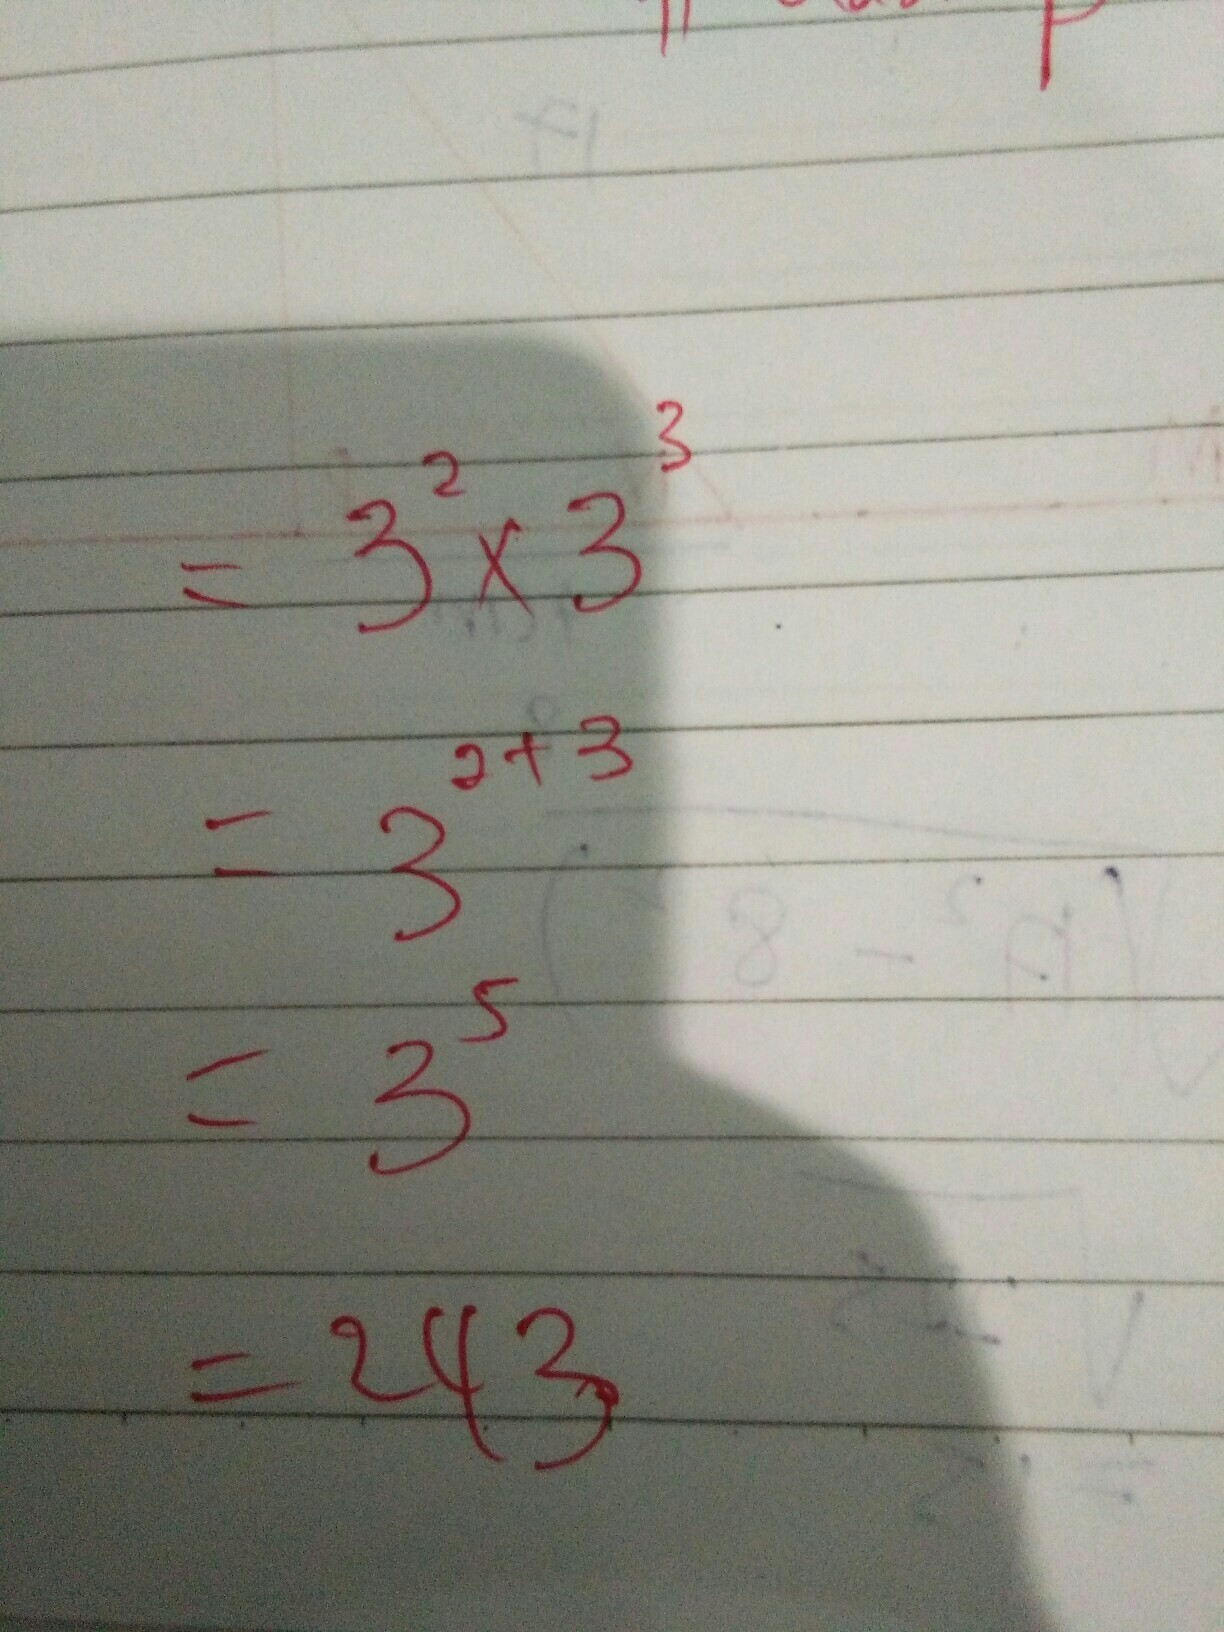 = 3² × 3³
= 3²⁺³
= 3⁵
= 243